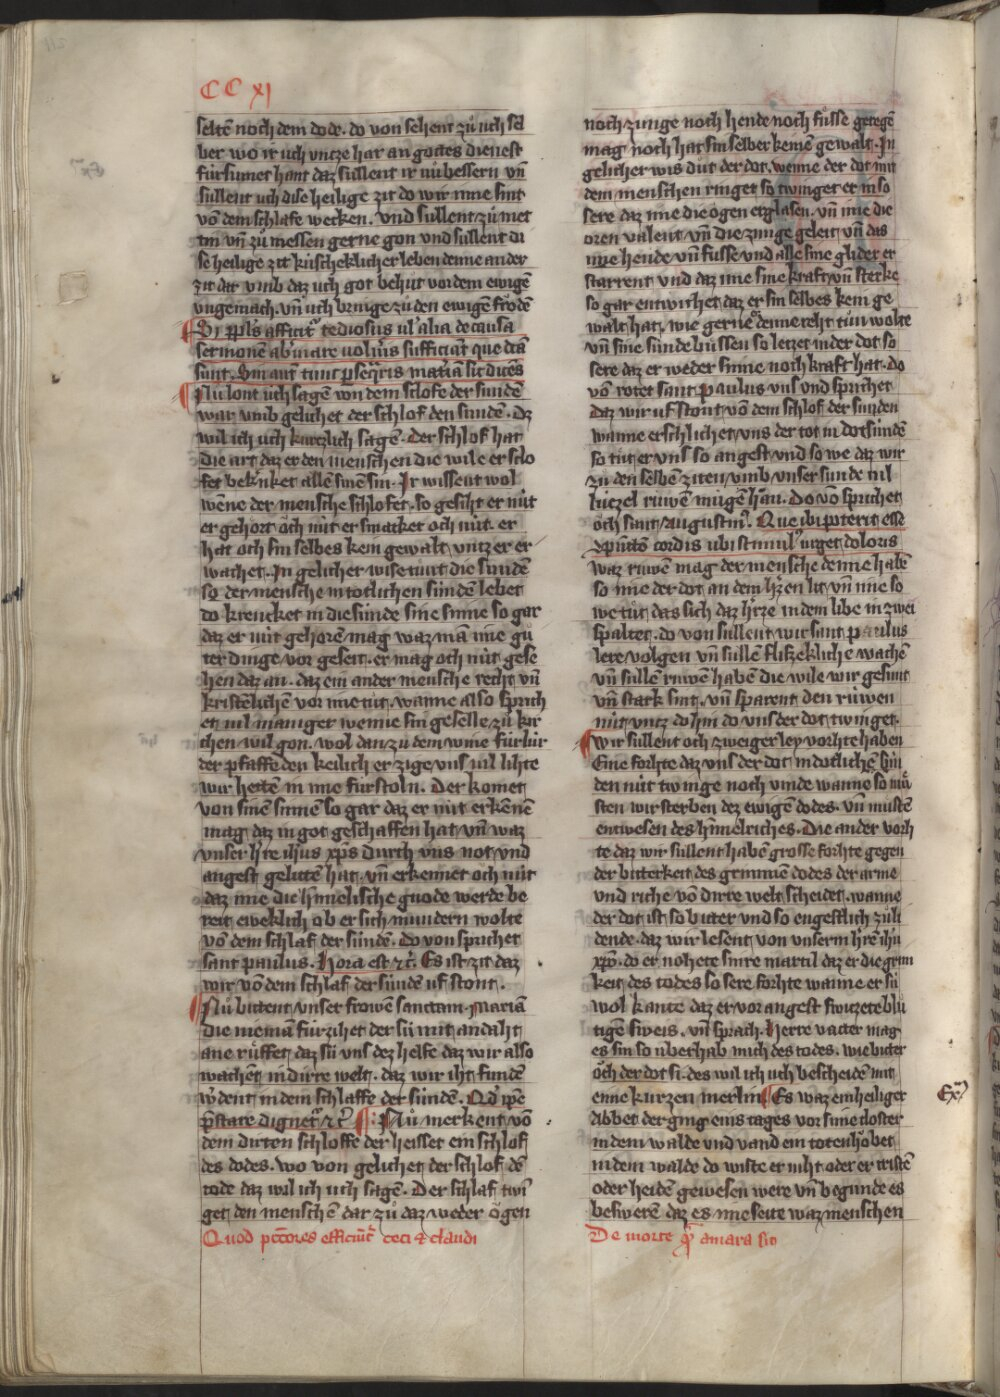 CC xj
seltē noch dem dode. do von sehent zů uch sel
ber wo ir uch vntze har an gottes dienest
fürsumet hant daz süllent ir nů bessern vn̄
süllent uch dise heilige zit do wir inne sint
vō dem schlafe wecken. Vnd süllent zů met
tin vn̄ zů messen gerne gon vnd süllent di
se heilige zit küscheklicher leben denne ander
zit dar vmb daz uch got behüt vor dem ewigē
vngemach. vn̄ uch bringe zů den ewigē frödē
Si ppl̄s afficit᷑ tediosus ul᷑ alia de causa
sermonē abuiare uolu᷑is sufficiāt que dc̄a
sunt. Sin aut᷑ tunc ꝑseq̄ris materiā sic dicēs
Nů lont uch sagē von dem sclofe der sündē
war vmb gelichet der schlof den sündē. dz
wil ich uch kurczlich sagē. Der schlof hat
die art daz er den menschen die wile er sclo
fet bekrēket allē sinē sin. Ir wissent wol
wēne der mensche schlofet. so gesiht er nüt
er gehört öch nüt er smacket öch nüt. er
hat och sin selbes kein gewalt vntz er er
wachet. In gelicher wise tunt die sündē
so der mensche in totlichen sündē lebet
do krencket in die sünde sine sinne so gar
daz er nüt gehorē mag waz mā ime gů
ter dinge vor geseit. er mag och nüt gese
hen daz an. daz ein ander mensche recht vn̄
kristēlichen vor ime tůt. wanne also sprich
et vil maniger wenne sin geselle zů kir
chen wil gon. wol dan zů dem wine für lür
der pfaffe den kelich er zige vns vil lihte
wir hetten in ime fürstoln. Der komet
von sinē sinnē so gar daz er nüt erkenē
mag daz in got geschaffen hat vn̄ waz
vnser h᷑re ih̄us xp̄s durch vns not vnd
angest gelittē hat. vn̄ erkennet öch nüt
daz ime die himelische gnode werde be
reit eweklich ob er sich mundern wolte
vō dem schlaf der sündē. do von sprichet
sant paulus. Hora est ⁊c̄. Es ist zit daz
wir vō dem schlaf der sündē uf stont.
Nů bittent vnser frowen sanctam Mariā
die niemā fürzihet der sü mit andaht
ane rüffet daz sü vns dez helfe daz wir also
wachent in dirre welt. daz wir iht fundē
w᷑dent in dem schlaffe der sündē. Qd᷑ ip̄e
p̄stare dignet᷑ ⁊c̄ Nů merkent vō
dem dirten schloffe der heisset ein schlof
des dodes. wo von gelichet der schlof dē
tode daz wil ich uch sagē. Der schlaf twi
get den menschē dar zů daz weder ögen
Quod pctōres efficiūt᷑ ceci ⁊ claudi
noch zunge noch hende noch füsse geregē
mag noch hat sin selber keinē gewalt. In
gelicher wis důt der dot. wenne der dot mit
dem menschen ringet so twinget er in so
sere daz ime die ögen erglasen. vn̄ ime die
oren valent vn̄ die zunge geleit vn̄ das
ime hende vn̄ füsse vnd alle sine glider er
starrent vnd daz ime sine kraft vn̄ sterke
so gar entwichet daz er sin selbes kein ge
walt hat. wie gerne denne reht tün wolte
vn̄ sine sünde büssen so letzet in der dot so
sere daz er weder sinne noch kraft hat. do
vō rotet sant paulus vns vnd sprichet
daz wir uf stont vō dem schlof der sunden
wanne erschlichet vns der tot in dotsündē
so tůt er vns so angest vnd so we daz wir
zů den selbē ziten vmb vnser sunde vil
lützel rüwē mügē hān. Do vō sprichet
öch sant Augustin᷒. Que ibi poterit esse
ꝯpūctō cordis ubi stimul᷒ urget doloris
waz ruwen mag der mensche denne habē
so ime der dot an dem h᷑zen lit vn̄ ime so
we tůt das sich daz h᷑rze in dem libe in zwei
spaltet. do von süllent wir sant paulus
lere volgen vn̄ süllē flißeklich e wachē
vn̄ süllē ruwen haben die wile wir gesunt
vn̄ stark sint. vn̄ sparent den ruwen
nüt vntz do hin do vns der dot twinget.
Wir süllent och zweiger ley vorhte haben
Eine forhte daz vns der dot in dotlichē sün
den nüt twinge noch vinde wanne so mů
sten wir sterben dez ewigen dodes. vn̄ müsten
entwesen des himelriches. Die ander vorh
te daz wir süllent habē grosse forhte gegen
der bitterkeit des gemeinē dodes der arme
vnd riche vō dirre welt scheidet. wanne
der dot ist so bitter vnd so engestlich zů li
dende. daz wir lesent von vnserm h᷑rē ih̄u
xp̄o. do er nohete sinre martil daz er die grim
keit des todes so sere forhte wanne er sü
wol kante daz er vor angest switzete blů
tigē sweis. vn̄ sprach. Herre vatter mag
es sin so überhab mich des todes. wie bitter
öch der dot si. des wil ich uch bescheidē mit
einē kurzen merlin Es waz ein heiliger
Abbet der ging eins tages vor sime closter
in dem walde vnd vand ein totenhöbet
in dem walde do wiste er niht oder er cristē
oder heidē gewesen were vn̄ begunde es
besweren daz es ime seite waz menschen
Exm̄
De morte q̄ amara sit